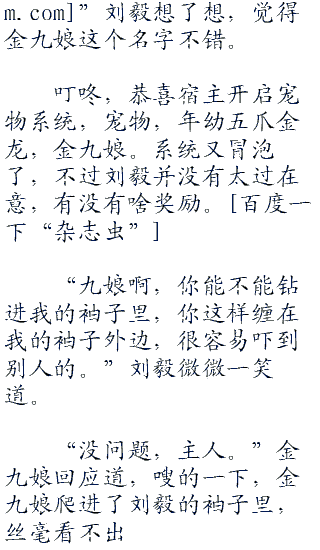 m.com]”刘毅想了想，觉得
金九娘这个名字不错。
叮咚，恭喜宿主开启宠
物系统，宠物，年幼五爪金
龙，金九娘。系统又冒泡
了，不过刘毅并没有太过在
意，有没有啥奖励。[百度一
下“杂志虫”]
“九娘啊，你能不能钻
进我的袖子里，你这样缠在
我的袖子外边，很容易吓到
别人的。”刘毅微微一笑
道。
“没问题，主人。”金
九娘回应道，嗖的一下，金
九娘爬进了刘毅的袖子里，
丝毫看不出